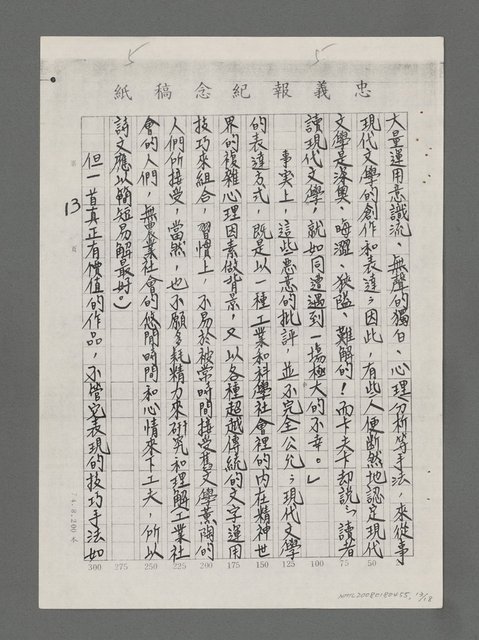 5
5
忠義報紀念稿紙
大量運用意識流、無聲的獨白、心理分析等手法，來從事
現代文學的創作和表達；因此，有些人便斷然地認定現代
文學是深奧、晦澀、狹隘、難解的！而七夫十却說：「讀者
讀現代文學，就如同遭遇到一場極大的不幸。」
事實上，這些惡意的批評，並不完全公允；現代文學
的表達方式，既是以一種工業和科學社會裡的內在精神世
界的複雜心理因素做背景，又以各種超越傳統的文字運用
技巧來組合，習慣上，不易於被常時間接受舊文學薰陶的
人們所接受，當然，也不願多耗精力來研究和理解工業社
會的人們，無農業社會的悠閒時間和心情來下工夫，所以
詩文應以簡短易解最好。）
但一首真正有價值的作品，不管它表現的技巧手法如
13
頁
25
50
75
100
125
150
175
200
225
250
275
300
74.8.200本
NMTL20080180455, 13/18